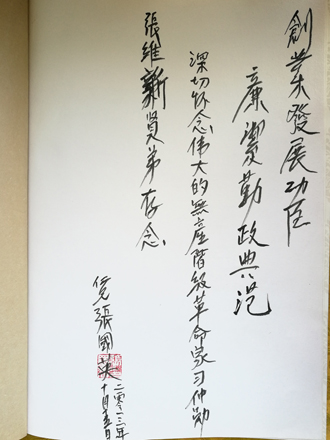 創業發展功臣
廉潔勤政典范
深切怀念伟大的無産階級革命家习仲勋
張維新賢弟存念
張國英
二〇一三年
十月十五日